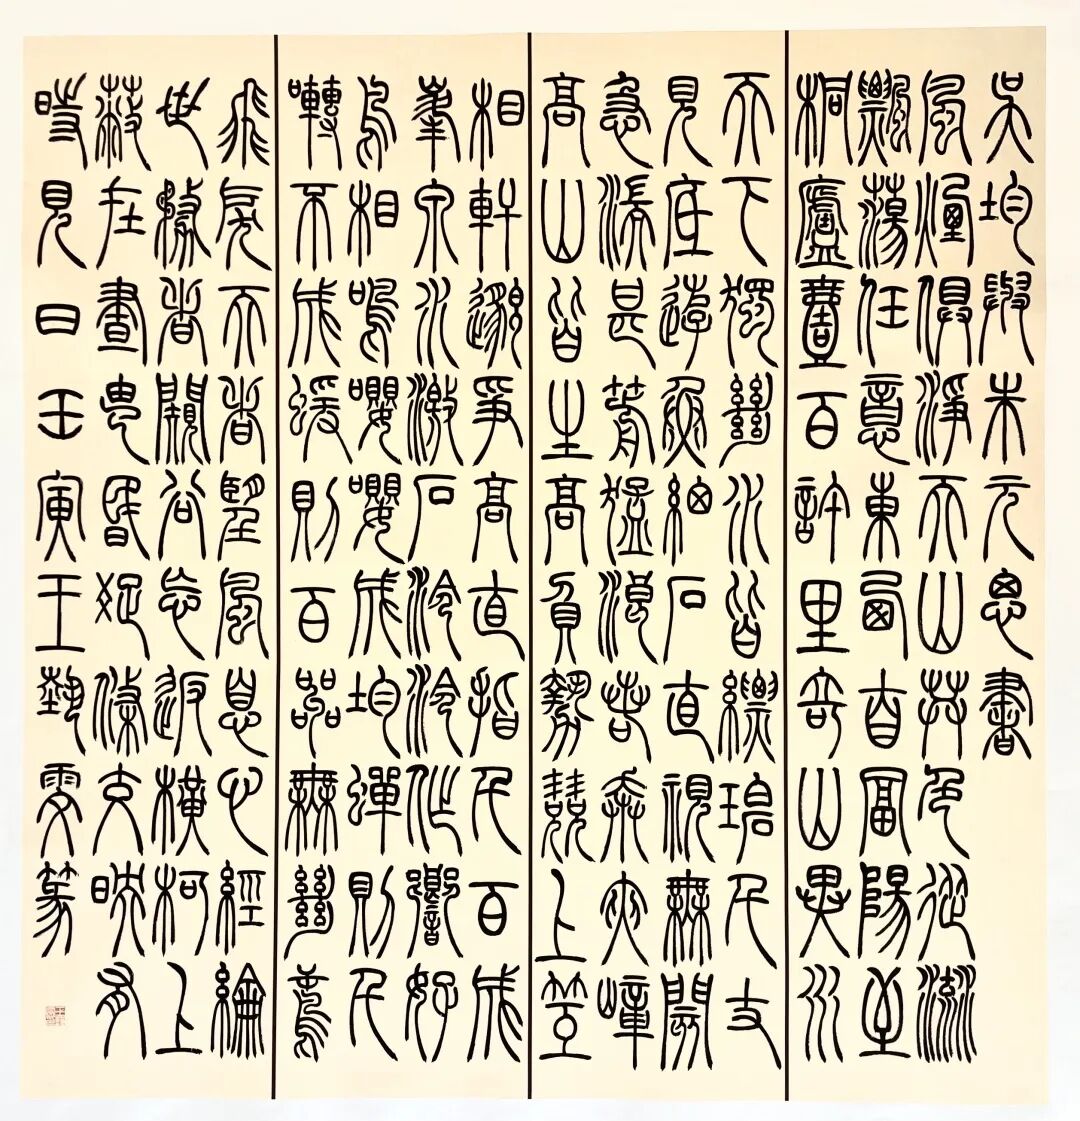 吳均與朱元思書
風煙俱淨天山共色從流
飄蕩任意東西自富陽至
桐廬壹百許里奇山異水
天下獨絕水皆縹碧千丈
見底遊魚細石直視無閡
急湍甚箭猛浪若奔夾嶂
高山皆生高負勢競上互
相軒邈爭高直指千百成
峯泉水激石泠泠作響好
鳥相鳴嚶嚶成均蟬則千
囀不成蝯則百叫無絕鳶
飛戾天者望風息心經綸
世務者闚谷忘返橫柯上
蔽在晝猶昏疏條交映有
時見日壬寅王藝雯篆